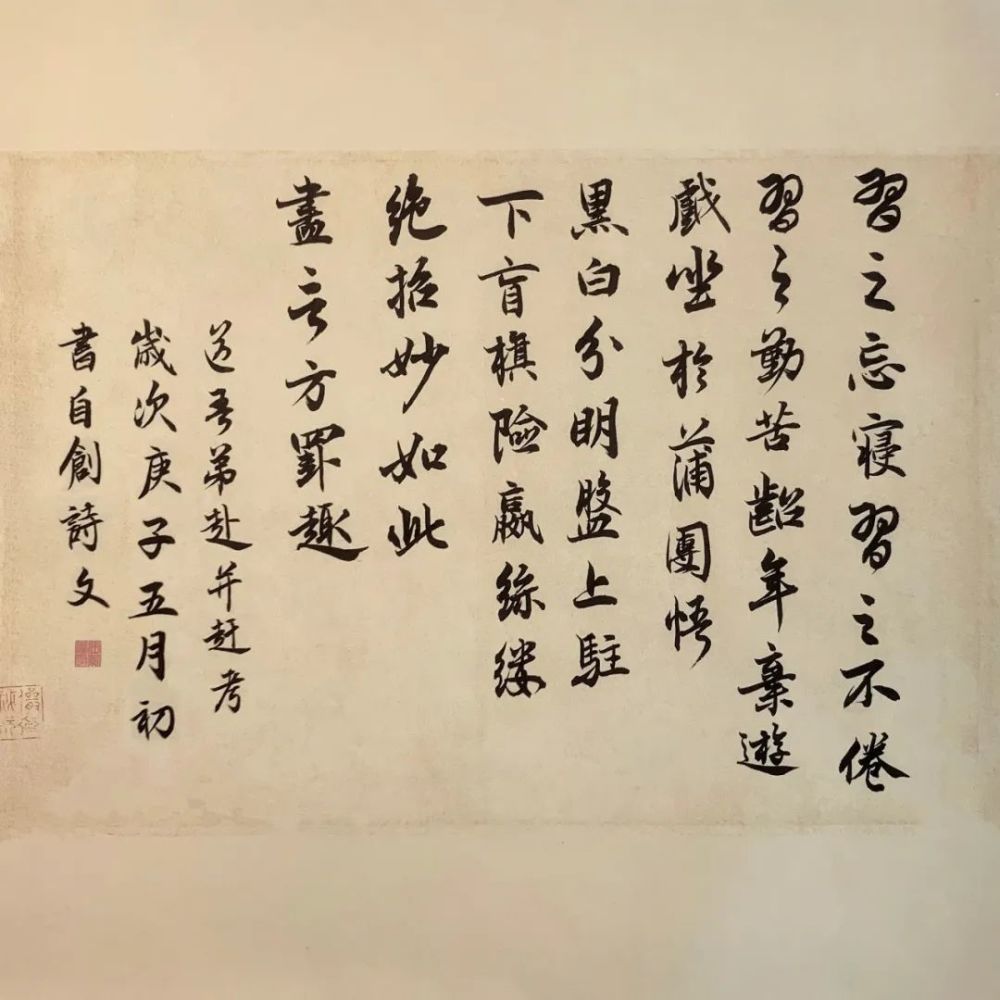 習之忘寝習之不倦
習之勤苦齠年棄遊
戲坐於蒲團悟
黒白分明盤上駐
下盲棋險贏絲縷
絶招妙如此
盡言方罷趣
送吾弟赴并赶考
歲次庚子五月初
書自創詩文